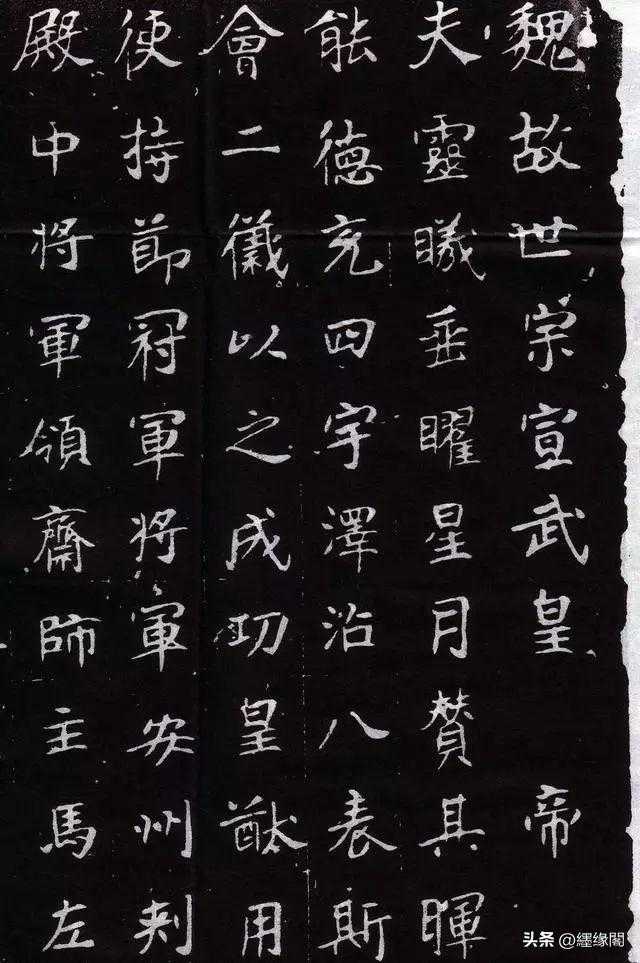 魏故世宗宣武皇帝
夫靈曦垂曜星月贊其暉
能德充四宇澤沾八表斯
會二儀以之成功皇猷用
使持節冠軍將軍安州刾
殿中將軍領齋師主馬左
头条 @纆缘閣